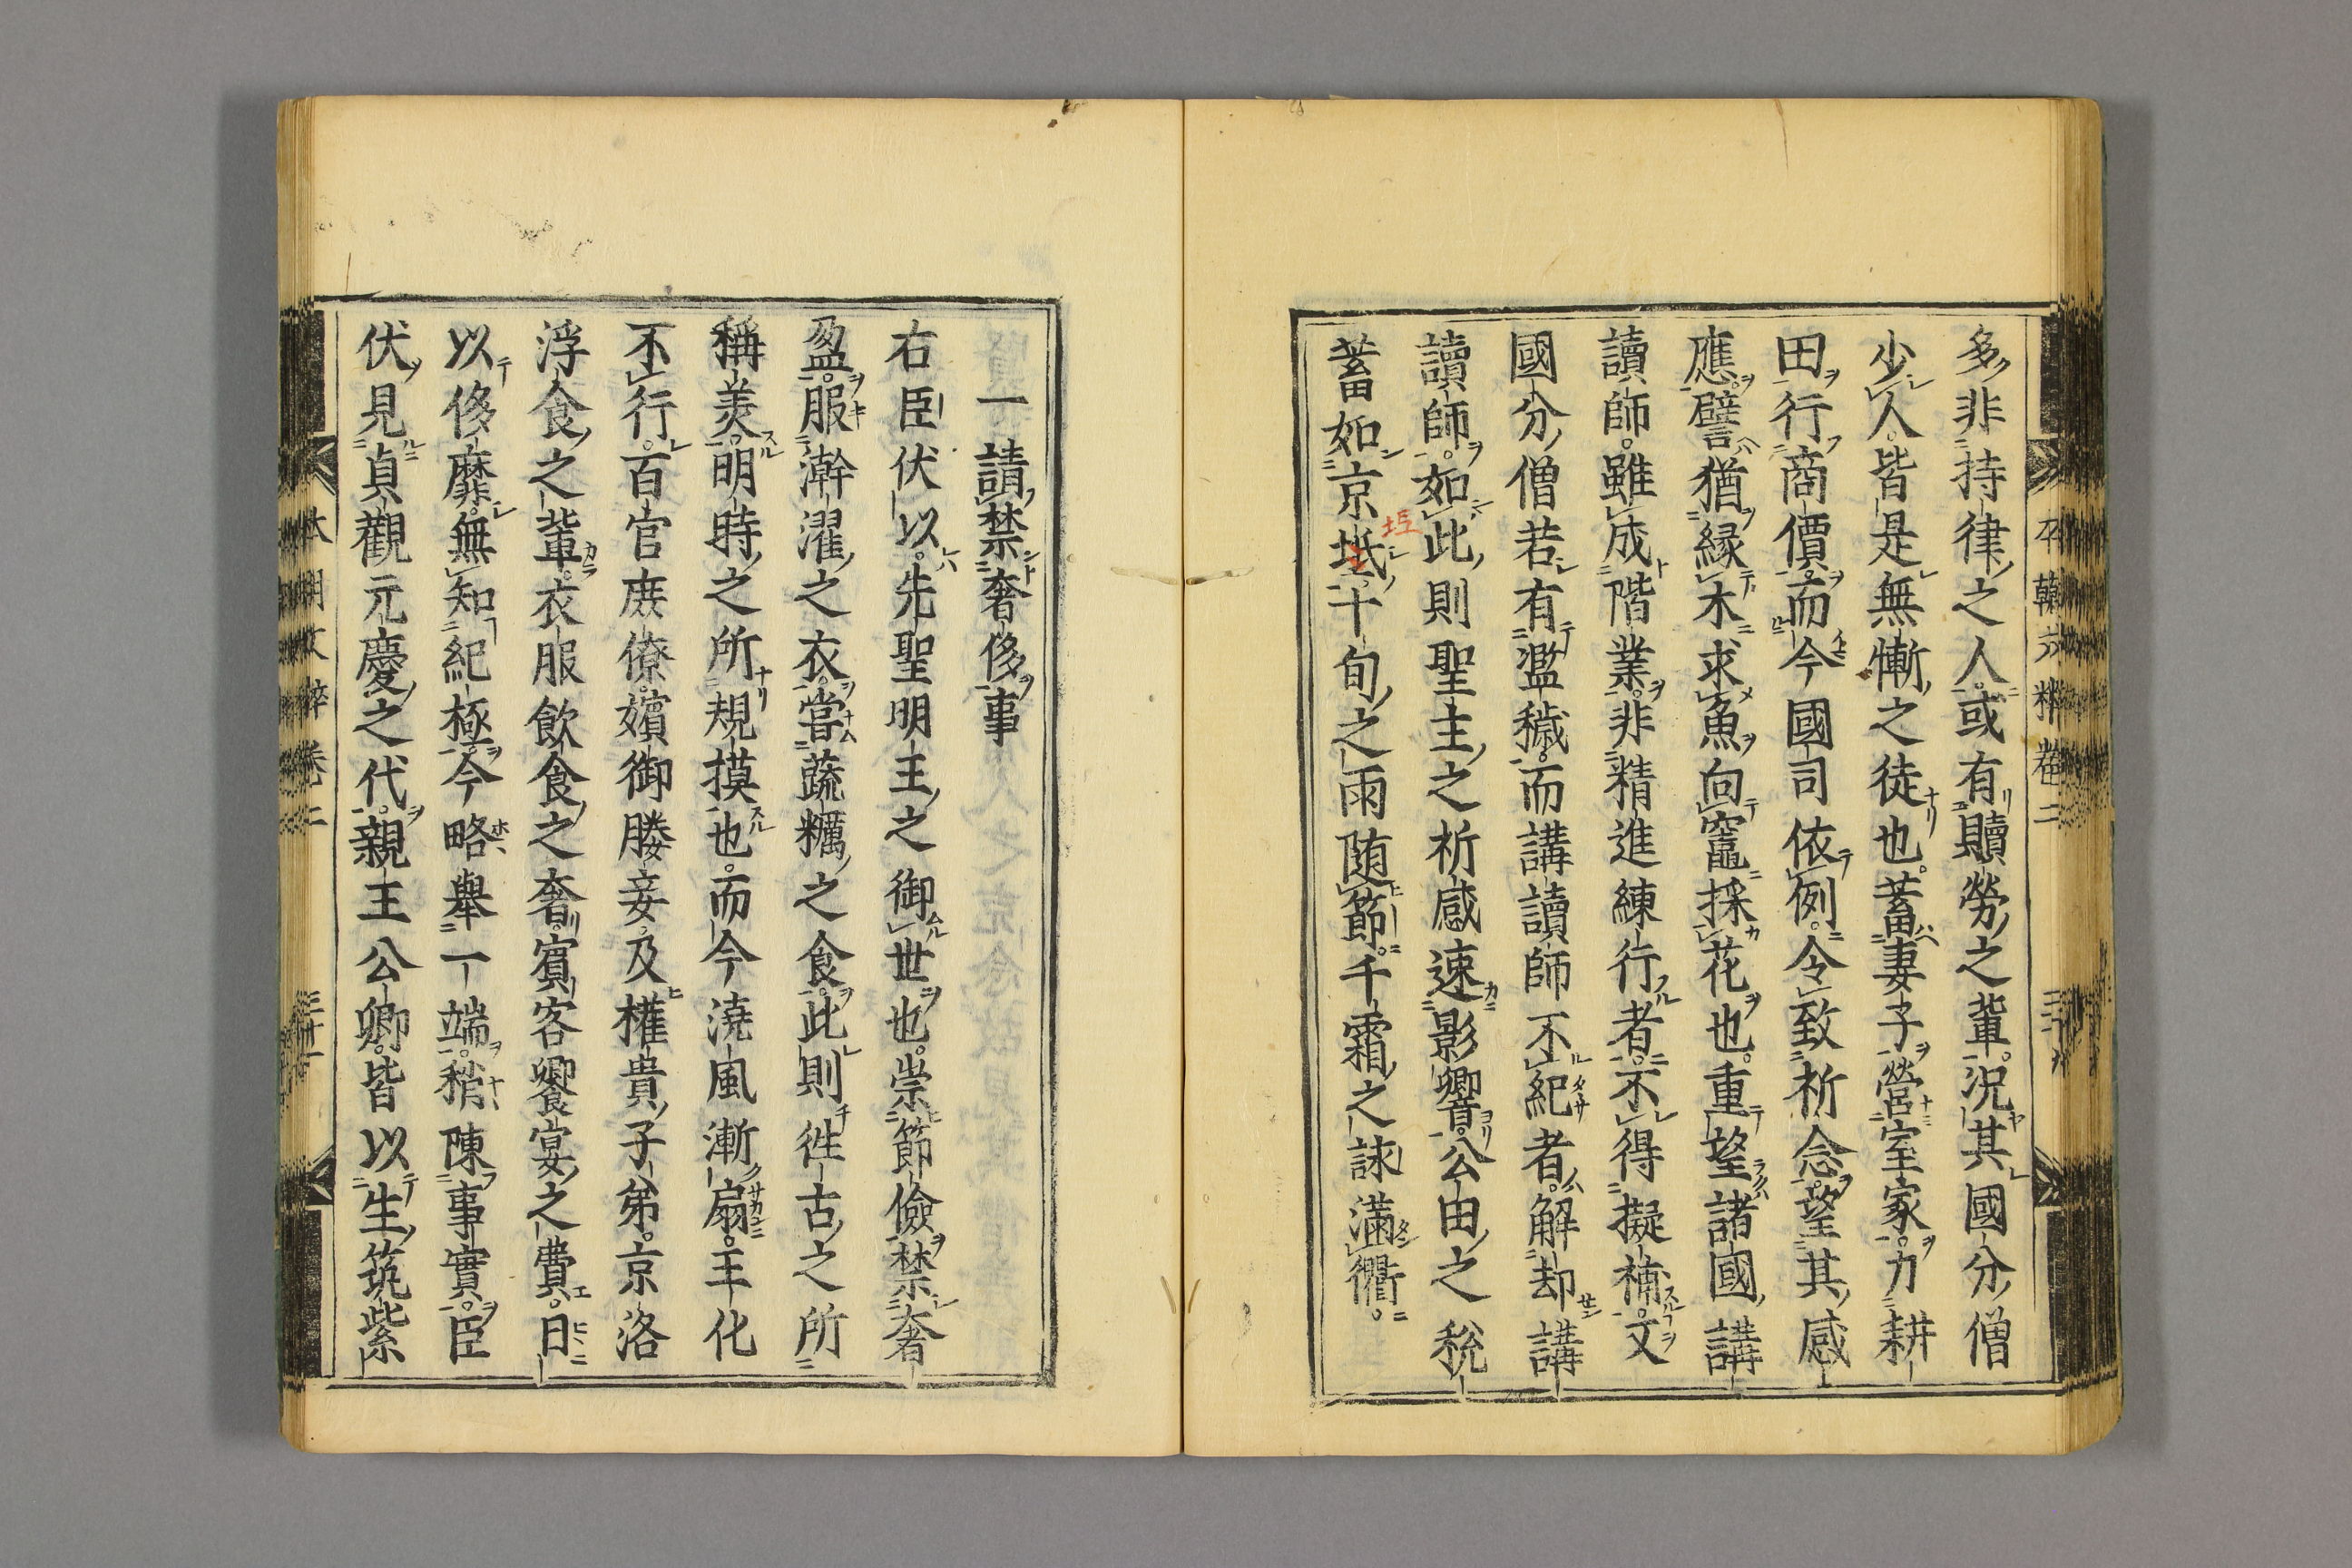 多非持律之人或有贖勞之輩况其國分僧
少人皆是無慚之徒也蓄妻子營室家力耕
田行商價而今國司依例令致祈念望其感
應譬猶縁木求魚向竈採花也重望諸國講
讀師雖成階業非精進練行者不得擬補文
國分僧若有濫穢而講讀師不紀者解却講
讀師如此則聖主之祈感速影響公田之税
蓄如京坻十旬之雨随節千霜之詠滿衢
一請禁奢侈事
右臣伏以先聖明王之御世也崇節儉禁奢
盈服澣濯之衣嘗蔬糲之食此則徃古之所
稱美明時之所規摸也而今澆風漸扇王化
不行百官庶僚嬪御媵妾及權貴子弟京洛
浮食之輩衣服飲食之奢賓客饗宴之費日
以侈靡無知紀極今略舉一端稍陳事實臣
伏見貞觀元慶之代親王公卿皆以生筑紫
本朝文粹卷二
三十一